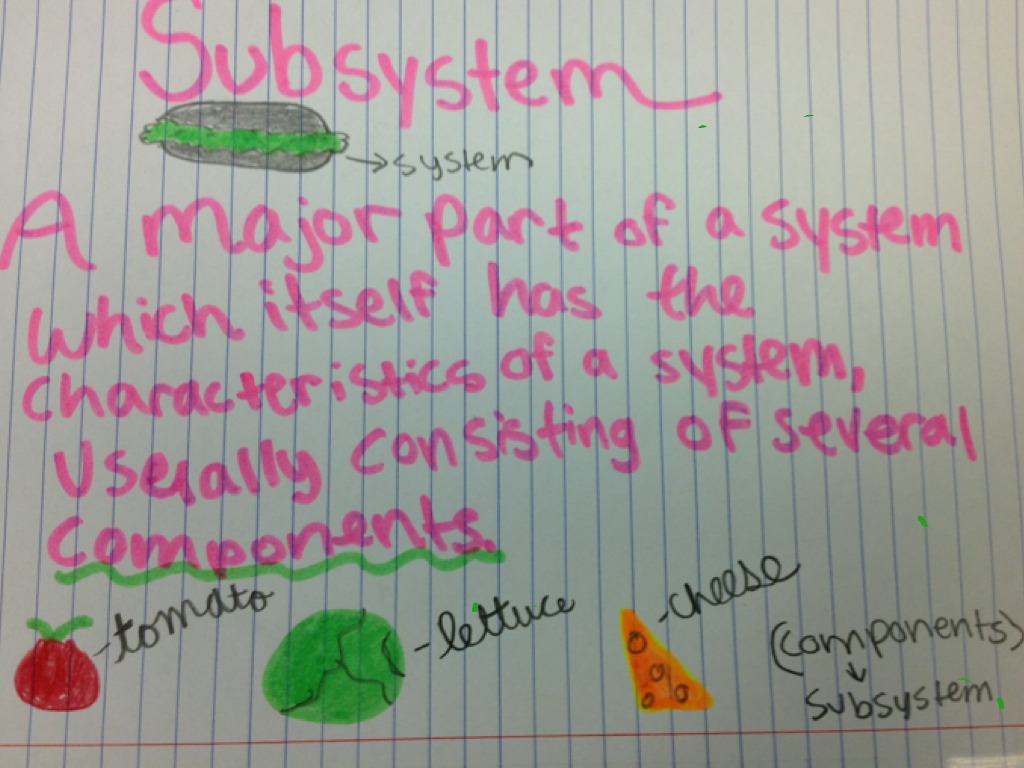 Subsystem
→system
A major part of a system
which itself has the
characteristics of a system,
Usually consisting of several
components.
-tomato
-lettuce
-cheese
(components)
↓
subsystem